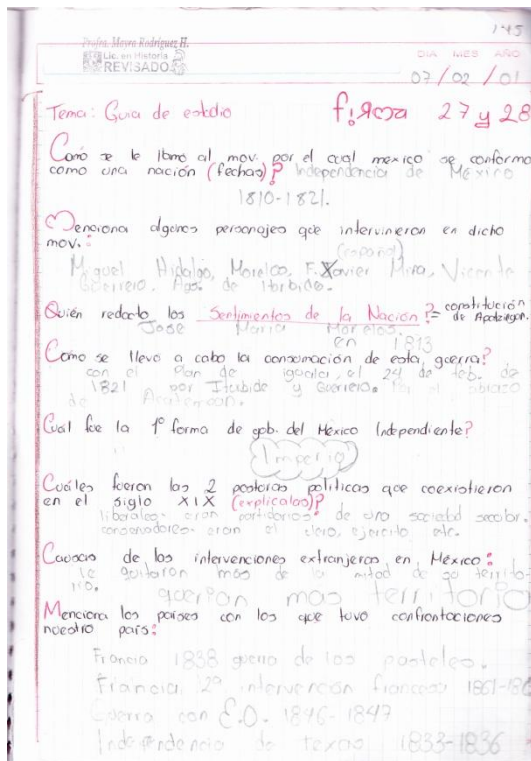 145
Profra. Mayra Rodríguez H.
Lic. en Historia
REVISADO
DIA MES AÑO
07/02/01
Tema: Guia de estudio
27 y 28
Como se le llamo al mov. por el cual mexico se conformo
como una nación (fechas)? Independencia de México
1810-1821.
Menciona algunos personajes que intervinieron en dicho
mov.:
(español)
Miguel Hidalgo, Morelos, F. Xavier Mina, Vicente
Guerrero. Agus. de Iturbide.
Quién redacto los Sentimientos de la Nación? = constitución
de Apatzingan.
José Maria Morelos.
en 1813
Como se llevo a cabo la consumación de esta, guerra?
con el Plan de iguala, el 24 de feb. de
1821 por Iturbide y Guerrero. Por el abrazo
de
Cuál fue la 1º forma de gob. del México Independiente?
Imperio
Cuáles fueron las 2 posturas politicas que coexistieron
en el siglo XIX (explicalas)?
liberales- eran partidarios de una sociedad secular.
conservadores- eran el clero, ejercito, etc.
Causas de las intervenciones extranjeras en México:
le quitaron mas de la mitad de su territo-
rio.
querian mas territorio
Menciona los paises con los que tuvo confrontaciones
nuestro pais:
Francia 1838 guerra de los pasteles.
Francia, 2º intervención francesa 1861-186
Guerra con E.U. 1846-1847
Independencia de texas 1833-1836